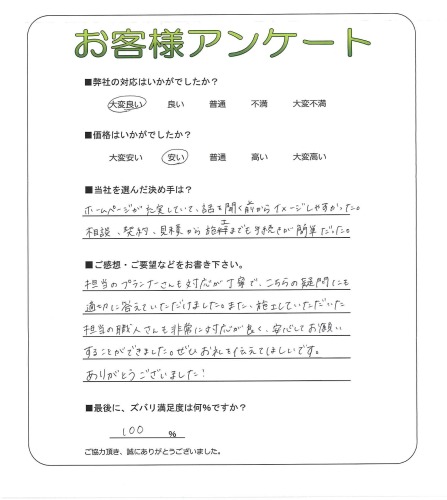 お客様アンケート
■弊社の対応はいかがでしたか？
大変良い 良い 普通 不満 大変不満
■価格はいかがでしたか？
大変安い 安い 普通 高い 大変高い
■当社を選んだ決め手は？
ホームページが充実していて、話を聞く前からイメージしやすかった。
相談、契約、見積から施工までも手続きが簡単だった。
■ご感想・ご要望などをお書き下さい。
担当のプランナーさんも対応が丁寧で、こちらの疑問にも
適切に答えていただけました。また、施工していただいた
担当の職人さんも非常に対応が良く、安心してお願い
することができました。ぜひお礼を伝えてほしいです。
ありがとうございました！
■最後に、ズバリ満足度は何%ですか？
100 %
ご協力頂き、誠にありがとうございました。